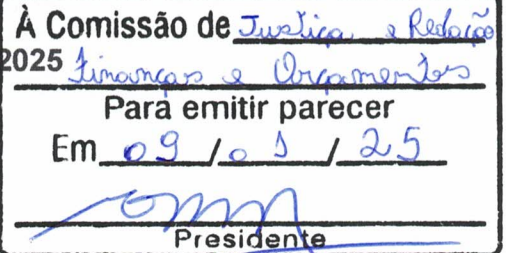 À Comissão de Justiça e Redação
2025 Finanças e Orçamentos
Para emitir parecer
Em 09 / 01 / 25
Presidente